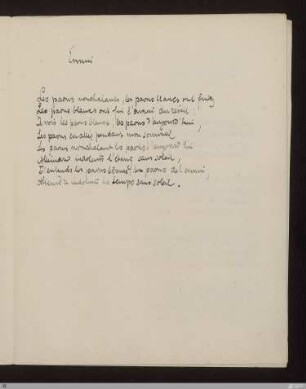 Ennui
Les paons nonchalants, les paons blancs ont fui,
Les paons blancs ont fui l'ennui du réveil
Je vois les paons blancs, les paons d'aujourd'hui,
Les paons en allés pendant mon sommeil
Les paons nonchalants les paons d'aujourd'hui
Atteindre indolents l'étang sans soleil,
J'entends les paons blancs, les paons de l'ennui,
Attendre indolents les temps sans soleil.